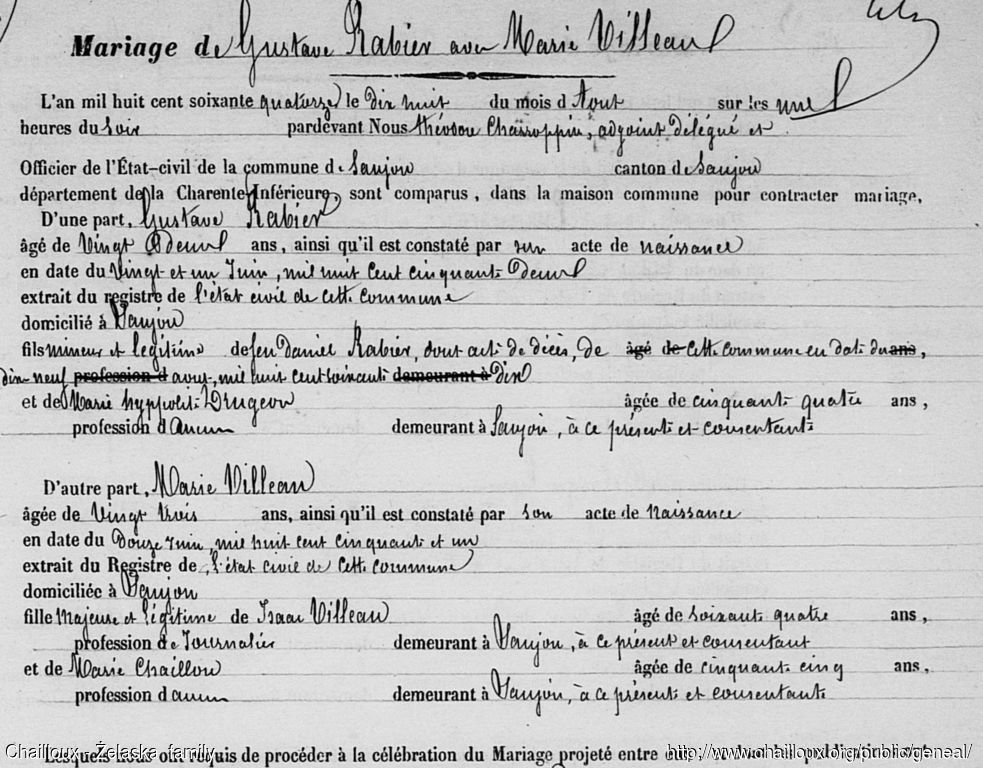 Mariage de Gustave Rabier avec Marie Villeau
L'an mil huit cent soixante quatorze le dix huit du mois d'Aout sur les
heures du soir pardevant Nous théodore adjoint délégué et
Officier de l'État-civil de la commune de Saujon canton de Saujon
département de la Charente-Inférieure, sont comparus, dans la maison commune pour contracter mariage,
D'une part, Gustave Rabier
âgé de Vingt Deux ans, ainsi qu'il est constaté par son acte de naissance
en date du Vingt et un Juin, mil huit Cent Cinquante Deux
extrait du registre de l'état civil de cette commune
domicilié à Saujon
fils mineur et légitime de feu Daniel Rabier, dont acte de décès, de âgé de Cette Commune en date du ans,
dix neuf profession d mil huit cent soixante demeurant à Dix
et de Marie hyppolite Drugeon âgée de cinquante quatre ans,
profession d'aucun demeurant à Saujon, à ce présente et consentante
D'autre part, Marie Villeau
âgée de Vingt trois ans, ainsi qu'il est constaté par son acte de naissance
en date du Douze Juin, mil huit cent cinquante et un
extrait du Registre de l'état civil de cette commune
domiciliée à Saujon
fille Majeure et légitime de Isaac Villeau âgé de soixante quatre ans,
profession de Journalier demeurant à Saujon, à ce présent et consentant
et de Marie Chaillou âgée de cinquante cinq ans,
profession d'aucun demeurant à Saujon, à ce présente et consentante
Lesquels nous ont requis de procéder à la célébration du Mariage projeté entre eux, et dont les publications ont
Chailloux - Żelaska family http://www.chailloux.org/public/geneal/